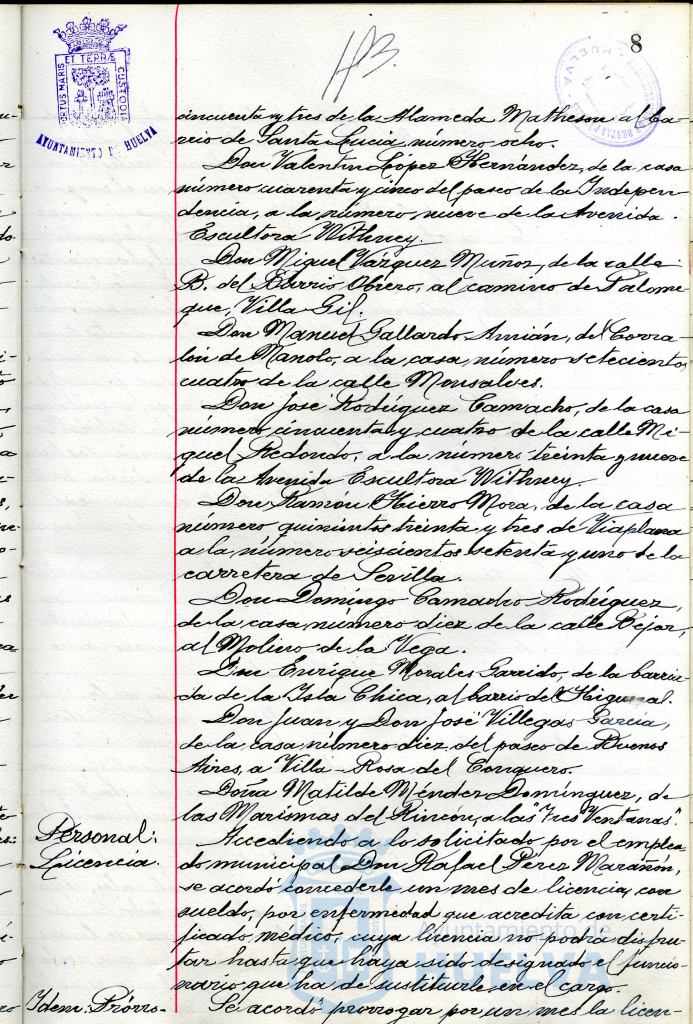 8
PORTUS MARIS ET TERRÆ CUSTODIA
AYUNTAMIENTO DE HUELVA
cincuenta y tres de la Alameda Mathesme al ba-
rrio de Santa Lucia, número ocho.
Don Valentin López Hernández, de la casa
número cuarenta y cinco del paseo de la Indepen-
dencia, a la número nueve de la Avenida
Escultora Withney.
Don Miguel Vázquez Muñoz, de la calle
B. del Barrio Obrero, al camino de Palome-
que, Villa Gil.
Don Manuel Gallardo Amián, del Corra-
lón de Manolo, a la casa número setecientos
cuatro de la calle Monsalves.
Don José Rodríguez Camacho, de la casa
número cincuenta y cuatro de la calle Mi-
guel Redondo, a la número treinta y nueve
de la Avenida Escultora Withney.
Don Ramón Hierro Mora, de la casa
número quinientos treinta y tres de Viaplana
a la número seiscientos setenta y uno de la
carretera de Sevilla.
Don Domingo Camacho Rodríguez,
de la casa número diez de la calle Béjar,
al Molino de la Vega.
Don Enrique Morales Garrido, de la barria-
da de la Isla Chica, al barrio del Higueral.
Don Juan y Don José Villegas García,
de la casa número diez del paseo de Buenos
Aires, a Villa Rosa del Conquero.
Doña Matilde Méndez Domínguez, de
las Marismas del Rincón, a las "Tres Ventanas".
Personal:
Licencia.
Accediendo a lo solicitado por el emplea-
do municipal Don Rafael Pérez Marañón,
se acordó concederle un mes de licencia, con
sueldo, por enfermedad que acredita con certi-
ficado médico, cuya licencia no podrá disfru-
tar hasta que haya sido designado el funcio-
nario que ha de sustituirle en el cargo.
Idem: Prórro-
Se acordó prorrogar por un mes la licen-
Ayuntamiento de
HUELVA